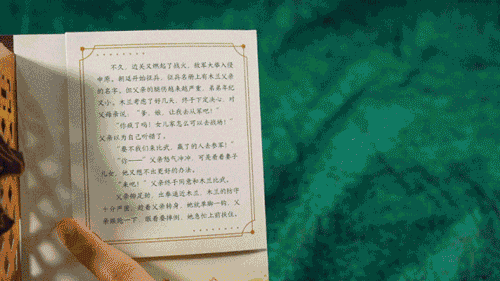 不久，边关又燃起了战火，敌军大举入侵
中原。朝廷开始征兵，征兵名册上有木兰父亲
的名字。但父亲的腿伤越来越严重，弟弟年纪
又小。木兰考虑了好几天，终于下定决心，对
父母亲说：“爹、娘，让我去从军吧！”
“你疯了吗！女儿家怎么可以去战场！”
父亲以为自己听错了。
“要不我们来比武，赢了的人去参军！”
“你——”父亲怒气冲冲，可是看着妻子
儿女，他又想不出更好的办法。
“来吧！”父亲终于同意和木兰比武。
父亲脚足劲，出拳逼近木兰，木兰的防守
十分严密，趁着父亲转身，她就单脚一钩，父
亲踉跄一下，眼看要摔倒，她急忙上前扶住。